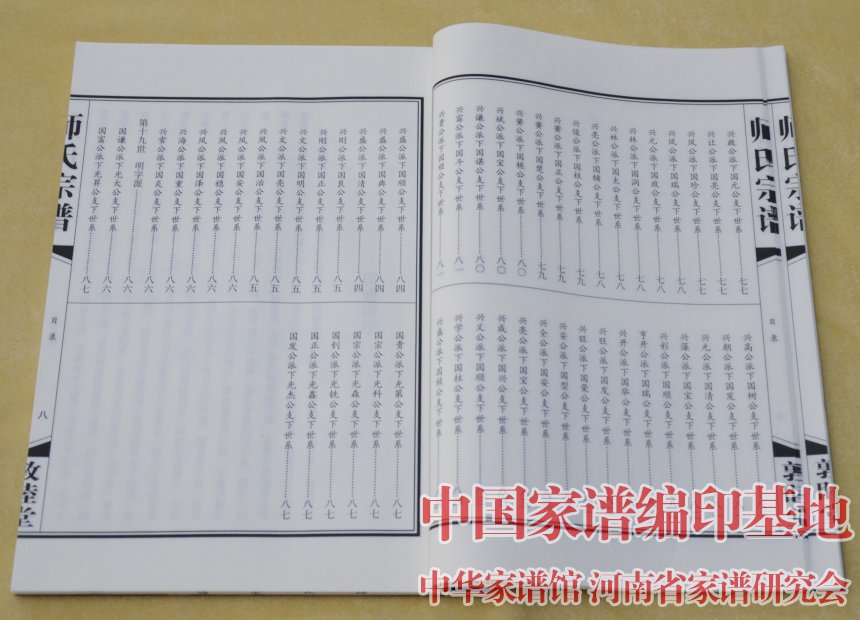 师氏宗谱
目录
兴政公派下国元公支下世系……七七
兴让公派下国亮公支下世系……七七
兴凤公派下国珍公支下世系……七八
兴凤公派下国瑞公支下世系……七八
兴元公派下国政公支下世系……七八
兴林公派下国润公支下世系……七八
兴林公派下国太公支下世系……七八
兴亮公派下国辅公支下世系……七八
兴俊公派下国柱公支下世系……七九
公派下国正公支下世系……七九
公派下国楚公支下世系……七九
公派下国栋公支下世系……八〇
兴斌公派下国宝公支下世系……八〇
兴谦公派下国谋公支下世系……八〇
兴富公派下国斗公支下世系……八一
兴青公派下国顺公支下世系……八一
兴高公派下国树公支下世系
兴朝公派下国发公支下世系
兴元公派下国清公支下世系
兴藻公派下国宝公支下世系
兴彩公派下国顺公支下世系
亨开公派下国瑞公支下世系
兴开公派下国举公支下世系
兴旺公派下国发公支下世系
兴旺公派下国荣公支下世系
兴安公派下国型公支下世系
兴全公派下国安公支下世系
兴亮公派下国宝公支下世系
兴成公派下国兴公支下世系
兴义公派下国顺公支下世系
兴学公派下国柱公支下世系
兴盛公派下国祯公支下世系
兴盛公派下国顺公支下世系……八四
兴盛公派下国典公支下世系……八四
兴盛公派下国清公支下世系……八四
兴刚公派下国良公支下世系……八五
兴刚公派下国正公支下世系……八五
兴文公派下国明公支下世系……八五
兴文公派下国亮公支下世系……八五
兴凤公派下国治公支下世系……八五
兴凤公派下国安公支下世系……八六
兴凤公派下国稳公支下世系……八六
兴凤公派下国泽公支下世系……八六
兴海公派下国重公支下世系……八六
兴常公派下国炎公支下世系……八六
第十九世 明字派……八六
国谦公派下光大公支下世系……八六
国富公派下光昇公支下世系……八七
国贵公派下光第公支下世系……八七
国宗公派下光科公支下世系……八七
国宗公派下光森公支下世系……八七
国制公派下光铣公支下世系……八七
国正公派下光鑫公支下世系……八七
国发公派下光杰公支下世系……八七
师氏宗谱
目录
八
敦睦堂
中国家谱编印基地
中华家谱馆 河南省家谱研究会